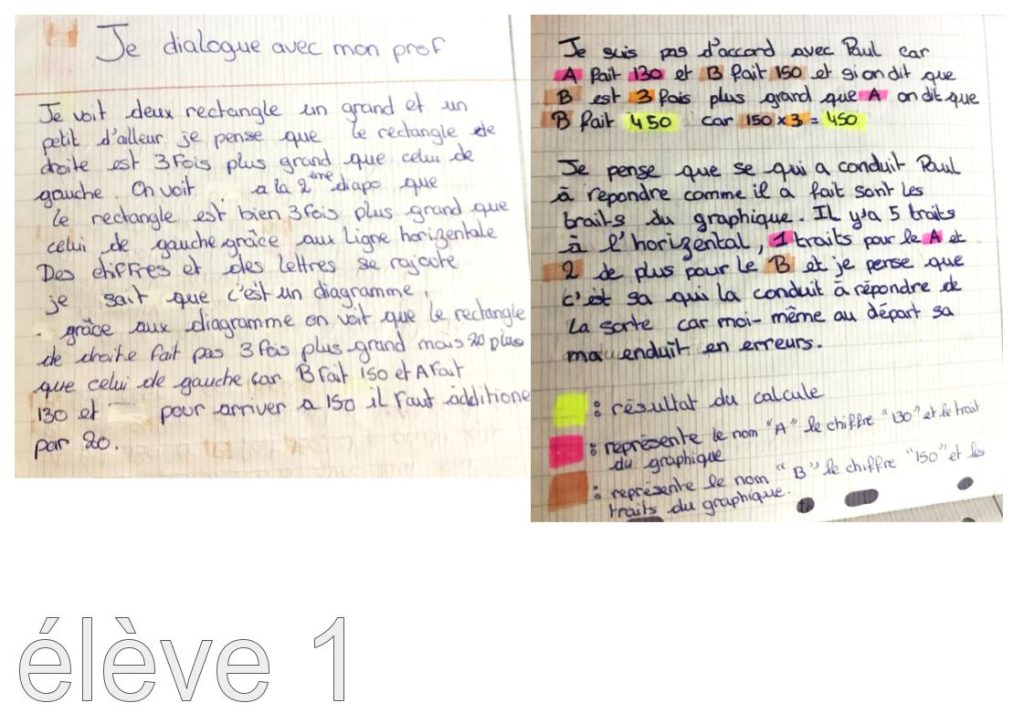 Je dialogue avec mon prof
Je voit deux rectangle un grand et un
petit d'ailleur je pense que le rectangle de
droite est 3 fois plus grand que celui de
gauche. On voit a la 2ème diapo que
le rectangle est bien 3 fois plus grand que
celui de gauche grâce aux ligne horizentale
Des chiffres et des lettres se rajoute
je sait que c'est un diagramme.
. grâce aux diagramme on voit que le rectangle
de droite fait pas 3 fois plus grand mais 20 plus
que celui de gauche car B fait 150 et A fait
130 et pour arriver a 150 il faut additione
par 20.
Je suis pas d'accord avec Paul car
A fait 130 et B fait 150 et si on dit que
B est 3 fois plus grand que A on dit que
B fait 450 car 150 x 3 = 450
Je pense que se qui a conduit Paul
à répondre comme il a fait sont les
traits du graphique. IL y'a 5 traits
à l'horizental, 1 traits pour le A et
2 de plus pour le B et je pense que
c'est sa qui la conduit à répondre de
la sorte car moi-même au départ sa
ma enduit en erreurs.
: résultat du calcule
: représente le nom "A" le chiffre "130" et le trait
du graphique
: représente le nom "B" le chiffre "150" et les
traits du graphique.
élève 1